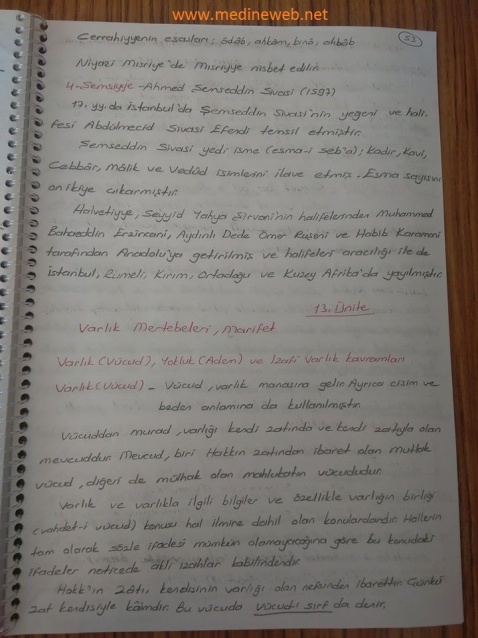 www.medineweb.net
53
Cerrahiyyenin esasları; âdâb, ahkâm, binâ, ahbâb
Niyazi Mısriye'de Mısriyye nisbet edilir.
4-Şemsiyye-Ahmed Şemseddin Sivasi (1597)
17. yy.da İstanbul'da Şemseddin Sivasi'nin yeğeni ve hali-
fesi Abdülmecid Sivasi Efendi temsil etmiştir.
Şemseddin Sivasi yedi isme (esma-i seb'a); Kadir, Kavi,
Cebbâr, Mâlik ve Vedûd isimlerini ilave etmiş. Esma sayısını
on ikiye çıkarmıştır.
Halvetiyye, Seyyid Yahya Şirvani'nin halifelerinden Muhammed
Bahaeddin Erzincani, Aydınlı Dede Ömer Ruşeni ve Habib Karamani
tarafından Anadolu'ya getirilmiş ve halifeleri aracılığı ile de
İstanbul, Rumeli, Kırım, Ortadoğu ve Kuzey Afrika'da yayılmıştır.
13. Ünite
Varlık Mertebeleri, Marifet
Varlık (Vücud), Yokluk (Adem) ve İzafi Varlık kavramları
Varlık (Vücud) - Vücud, varlık manasına gelir. Ayrıca cisim ve
beden anlamına da kullanılmıştır.
Vücuddan murad, varlığı kendi zatında ve kendi zatıyla olan
mevcuddur. Mevcud, biri Hakkın zatından ibaret olan mutlak
vücud, diğeri de mülhak olan mahlukatın vücududur.
Varlık ve varlıkla ilgili bilgiler ve özellikle varlığın birliği
(vahdet-i vücud) konusu hal ilmine dahil olan konulardandır. Hallerin
tam olarak sözle ifadesi mümkün olamayacağına göre bu konudaki
ifadeler neticede akli izahlar kabilindendir.
Hakk'ın Zâtı, kendisinin varlığı olan nefsinden ibarettir. Çünkü
zat kendisiyle kâimdir. Bu vücuda vücud-ı sırf da denir.